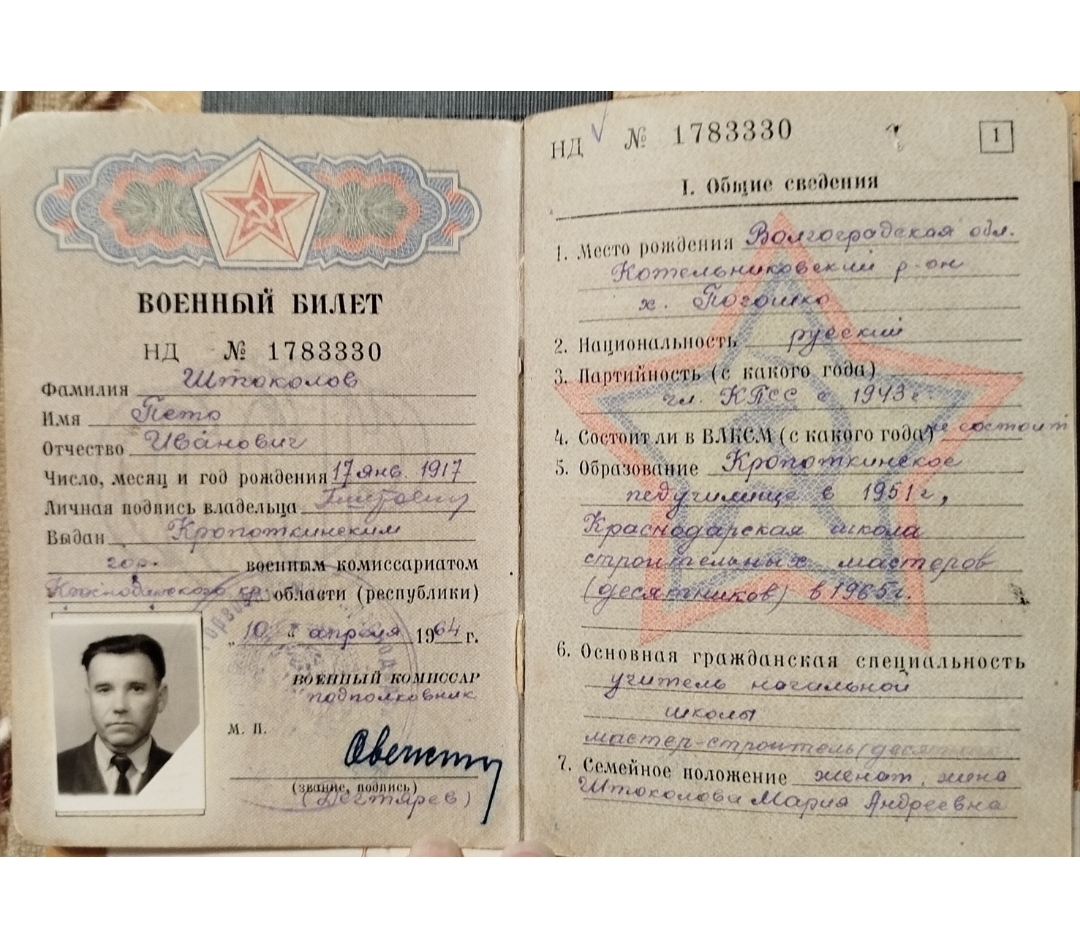 ВОЕННЫЙ БИЛЕТ
НД № 1783330
Фамилия Штоколов
Имя Петр
Отчество Иванович
Число, месяц и год рождения 17 янв. 1917
Личная подпись владельца
Выдан Кропоткинским
гор. военным комиссариатом
Краснодарского кр. области (республики)
„10 " апреля 1964 г.
ВОЕННЫЙ КОМИССАР
подполковник
М. П.
(звание, подпись)
(Дегтярев)
НД № 1783330
1
I. Общие сведения
1. Место рождения Волгоградская обл.
Котельниковский р-он
х. Погошко
2. Национальность русский
3. Партийность (с какого года)
чл. КПСС с 1943 г.
4. Состоит ли в ВЛКСМ (с какого года) не состоит
5. Образование Кропоткинское
педучилище в 1951 г,
Краснодарская школа
строительных мастеров
(десятников) в 1965 г.
6. Основная гражданская специальность
учитель начальной
школы
мастер-строитель
7. Семейное положение женат, жена
Штоколова Мария Андреевна